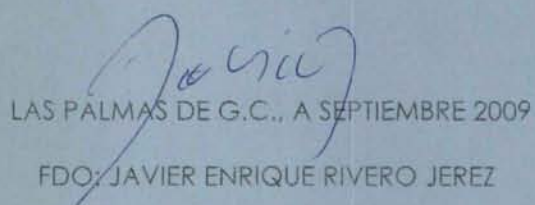 Javier
LAS PALMAS DE G.C., A SEPTIEMBRE 2009
FDO: JAVIER ENRIQUE RIVERO JEREZ